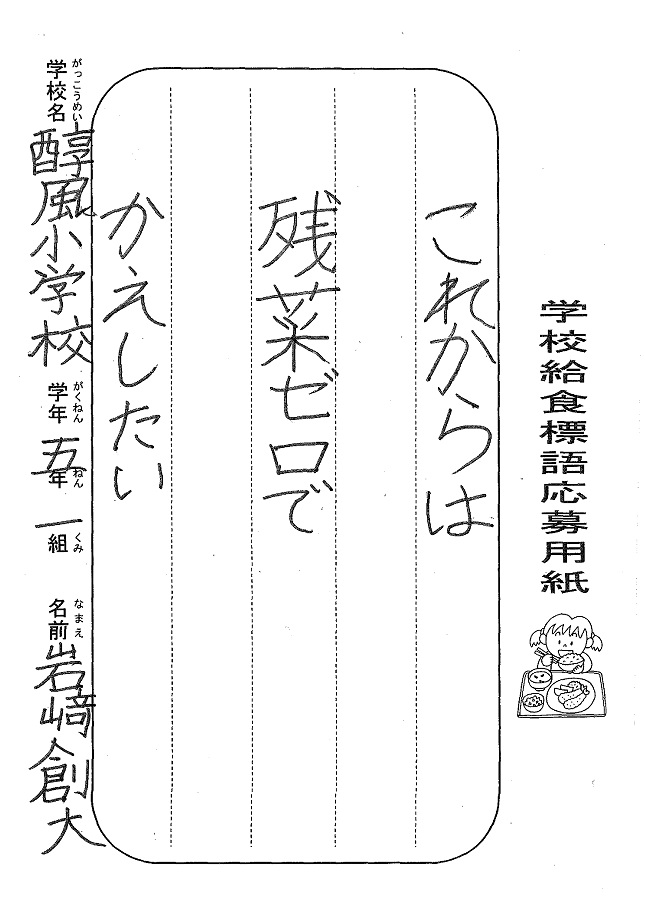 学校給食標語応募用紙
これからは
残菜ゼロで
かえしたい
学校名 醇風小学校 学年 五年 一組 名前 岩﨑創大
がっこうめい がくねん ねん くみ なまえ